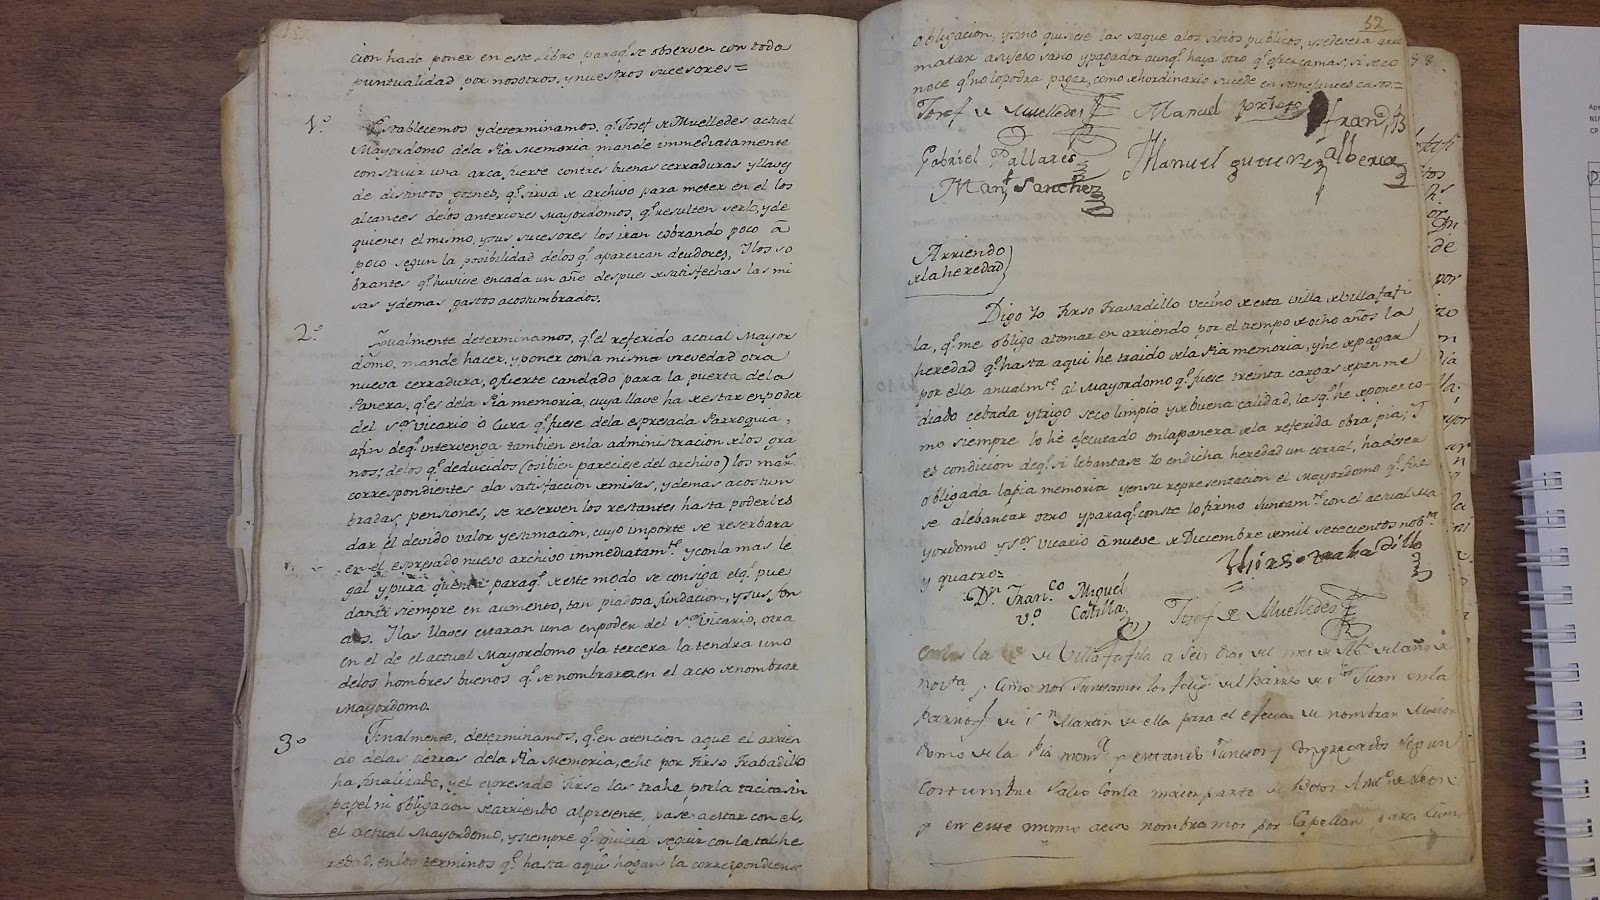 cion hade poner en este Libro paraq.e se observen con toda
puntualidad por nosotros, y nuestros sucesores=
1.º
Establecemos y determinamos, q.e Josef de Muelledes actual
Mayordomo dela Pia Memoria mande immediatamente
construir una arca fuerte contres buenas cerraduras y llaves
de distintos gones, q.e sirva de archivo para meter en el los
alcances delos anteriores Mayordomos, q.e resulten serlo, y de
quienes el mismo, y sus sucesores los iran cobrando poco â
poco segun la posibilidad delos q.e aparezcan deudores; Y los so
brantes q.e huviese encada un año despues de satisfechas las mi
sas y demas gastos acostumbrados.
2.º
Igualmente determinamos, q.e el referido actual Mayor
domo, mande hacer, y poner conla misma vrevedad otra
nueva cerradura, o fuerte candado para la puerta dela
Panera, q.e es dela Pia memoria, cuya llave ha de estar enpoder
del S.or Vicario ô Cura q.e fuese dela espresada Parroquia,
afin deq.e intervenga tambien enla administracion delos gra
nos; delos q.e deducidos (osibien pareciese del archivo) los mar.s
correspondientes ala satisfaccion de misas, y demas acostum
bradas pensiones, se reserven los restantes hasta poderles
dar el devido valor y estimacion, cuyo importe se reserbara
en el espresado nuevo archivo immediatam.te y conla mas le
gal y pura quenta paraq.e de este modo se consiga elq.e pue
dan ir siempre en aumento, tan piadosa fundacion, y sus fon
dos. Y las llaves estaran una enpoder del S.or Vicario, otra
en el de el actual Mayordomo y la tercera la tendra uno
delos hombres buenos q.e se nombraren en el acto de nombrar
Mayordomo.
3º
Finalmente, determinamos, q.e en atencion aque el arrien
do delas tierras dela Pia Memoria, echo por Tirso Trabadillo
ha finalizado, y el espresado Tirso las trahe, por la tacita sin
papel ni obligacion de arriendo al presente, pase a estar con el,
el actual Mayordomo, y siempre q.e quiera seguir con la tal he
redad, en los terminos q.e hasta aqui hagan la correspondiente
52
obligacion, y sino quisiese las saque alos sitios publicos, y se devera
matar asujeto sano y pagador aunq.e haya otro q.e ofrezca mas, si se co
noce q.e no lo podra pagar, como de hordinario sucede en semejantes casos=
Josef de Muelledes Manuel prieto Fran.co
Gabriel Pallares Manuel gutierrez
Man.l Sanchez
Arriendo
de la heredad
Digo Yo Tirso Travadillo vecino de esta villa de Villafafi
la, q.e me obligo atomar en arriendo por el tiempo de ocho años la
heredad q.e hasta aqui he traido de la Pia memoria, y he de pagar
por ella anualm.te al Mayordomo q.e fuese treinta cargas de pan me
diado cebada y trigo seco limpio y de buena calidad, las q.e he de poner co-
mo siempre lo he efecutado enlapanera de la referida obra pia; Y
es condicion deq.e si lebantase Yo endicha heredad un corral, ha de ser
obligada la pia memoria y en su representacion el Mayordomo q.e fuese
se a lebantar otro y paraq.e conste lo firmo juntam.te con el actual Ma
yordomo y S.or Vicario â nueve de Diciembre de mil setecientos nob.ta
y quatro=
Tirso trabadillo
D.n Fran.co Miguel
V.º Castilla
Josef de Muelledes
la de Villafafila a seis dias del mes de del año de
nov.ta y Cinco nos Juntamos los del Barrio de S.n Juan en la
Parroq.l de S.n Martin de ella para el efecto de nombrar Maior
domo de la Pia mem.a y estando Juntos y Congregados segun
Costumbre Salio Con la maior parte de Botos de Leon
y en este mismo acto nombramos por Capellan para